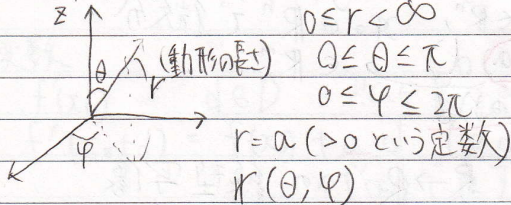 z
θ
r(動形の長さ)
φ
0≤r<∞
0≤θ≤π
0≤φ≤2π
r=a(>0という定数)
r(θ,φ)